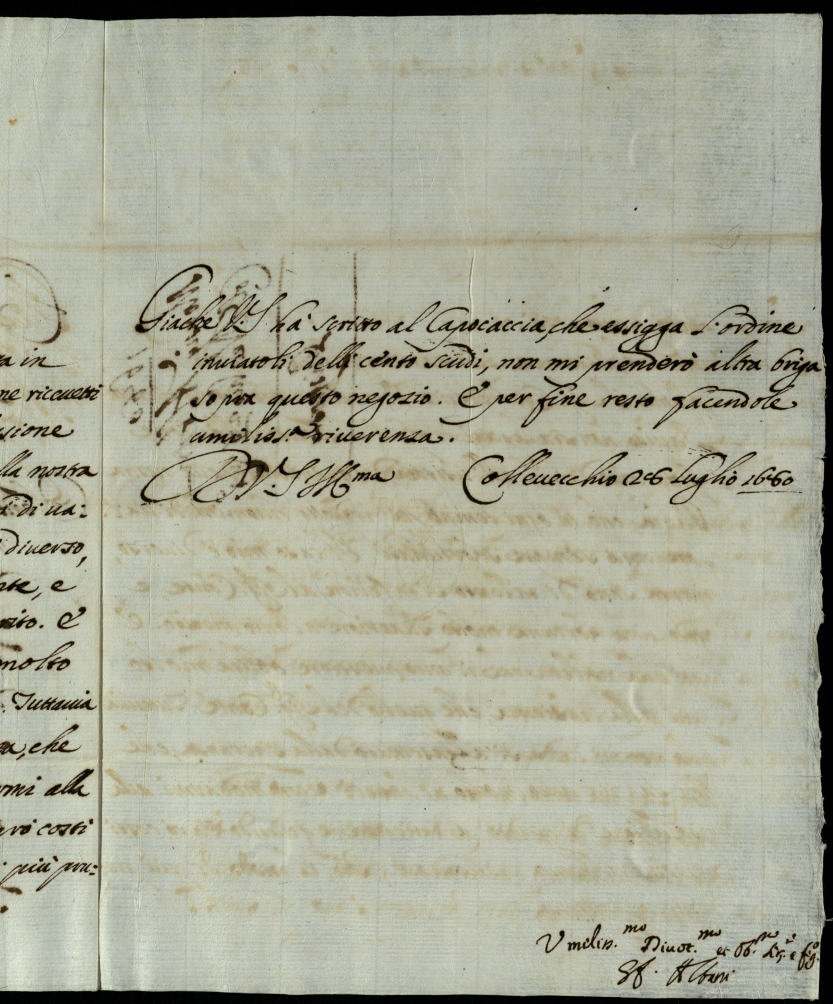 ta in
ne riceuetti
sione
lla nostra
di ua:
diuerso,
nte, e
nito. E
molto
Tuttauia
za, che
rmi alla
rò costi
più pru:
Giache V.S ha' scritto al Capocaccia, che essigga l'ordine
inuiatoli delli cento scudi, non mi prenderò altra briga
sopra questo negozio. E per fine resto facendole
umiliss.ª riuerenza.
D V.S Ill.ma Colleuecchio 26 luglio 1660
Vmiliss.mo Diuot.mo et Ob.mo
Albani